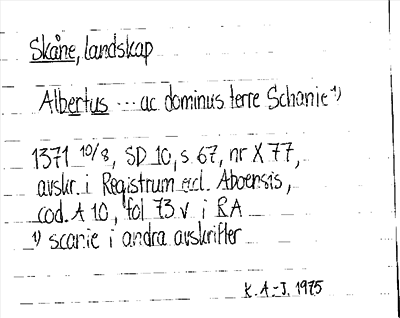 Skåne, landskap
Albertus ... ac dominus terre Schanie ¹⁾
1371 10/8, SD 10, s 67, nr X 77,
avskr. i Registrum eccl. Aboensis,
cod. A 10, fol 73 v i RA
¹⁾ scanie i andra avskrifter
K. A-J. 1975